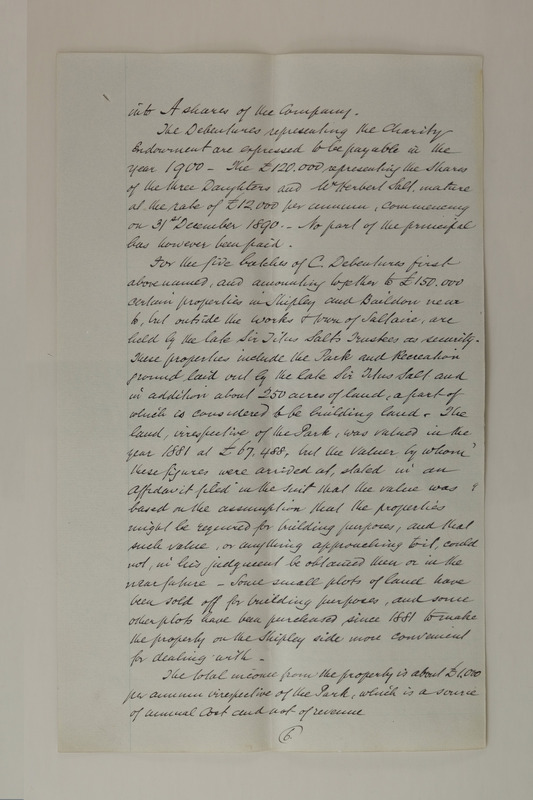 into A shares of the Company.
The Debentures representing the Charity
Endowment are expressed to be payable in the
year 1900 - The £120.000 representing the shares
of the three Daughters and Mr Herbert Salt, mature
at the rate of £12.000 per annum, commencing
on 31st December 1890. - No part of the principal
has however been paid.
For the five batches of C. Debentures first
above named, and amounting together to £150.000
certain properties in Shipley and Baildon near
to, but outside the works & town of Saltaire, are
held by the late Sir Titus Salts Trustees as security.
These properties include the Park and Recreation
ground laid out by the late Sir Titus Salt and
in addition about 250 acres of land, a part of
which is considered to be building land. The
land, irrespective of the Park, was valued in the
year 1881 at £67.488, but the valuer by whom
these figures were arrived at, stated in an
affidavit filed in the suit that the value was
based on the assumption that the properties
might be required for building purposes, and that
such value, or anything approaching to it, could
not, in his judgment be obtained then or in the
near future - Some small plots of land have
been sold off for building purposes, and some
other plots have been purchased since 1881 to make
the property on the Shipley side more convenient
for dealing with -
The total income from the property is about £1,000
per annum irrespective of the Park, which is a source
of annual Cost and not of revenue
6